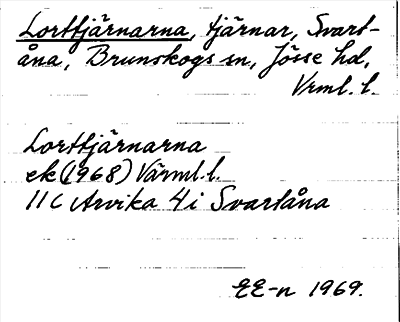 Lorttjärnarna, tjärnar, Svart-
åna, Brunskogs sn, Jösse hd,
Vrml. l.
Lorttjärnarna
ek (1968) Värml. l.
11 C Arvika 4 i Svartåna
EE-n 1969.